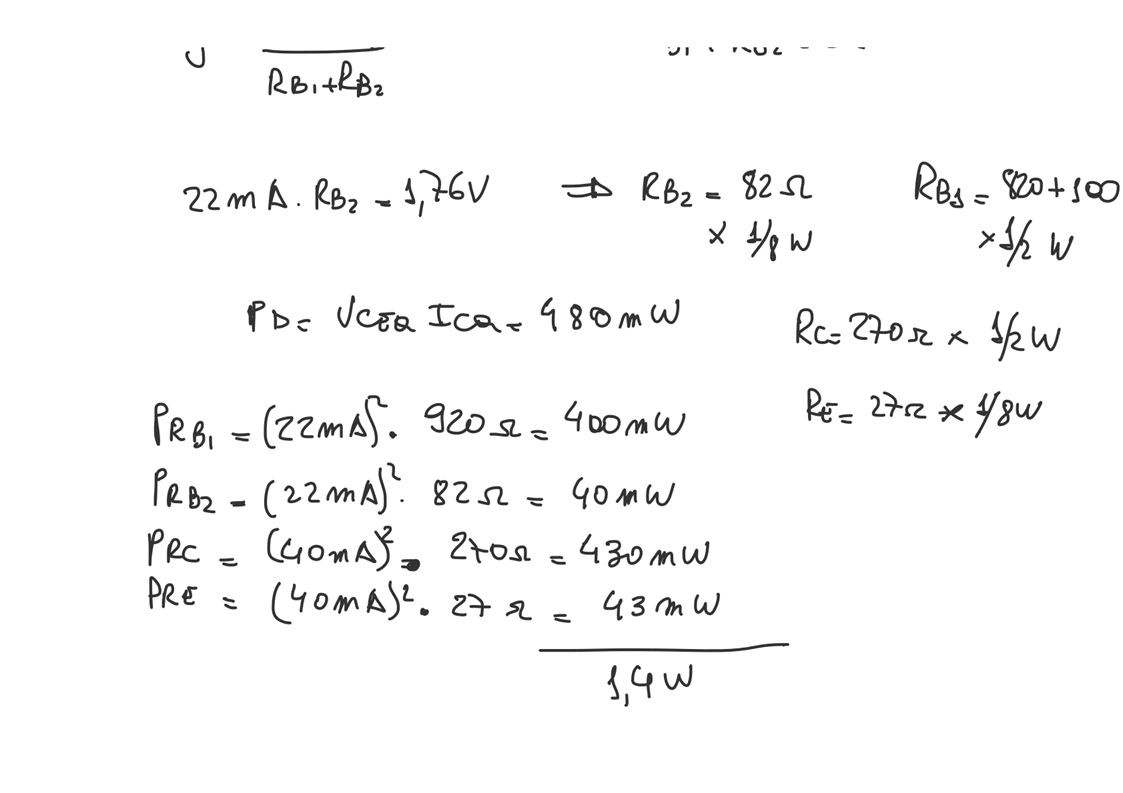 RB1+RB2
22mA. RB2 = 1,76V ⇒ RB2 = 82Ω RB1 = 820+100
× 1/8 W × 1/2 W
PD = VCEQ ICQ = 480mW RC = 270Ω × 1/2 W
RE = 27Ω × 1/8W
PRB1 = (22mA)². 920Ω = 400mW
PRB2 = (22mA)². 82Ω = 40mW
PRC = (40mA)². 270Ω = 430mW
PRE = (40mA)². 27Ω = 43mW
1,4W